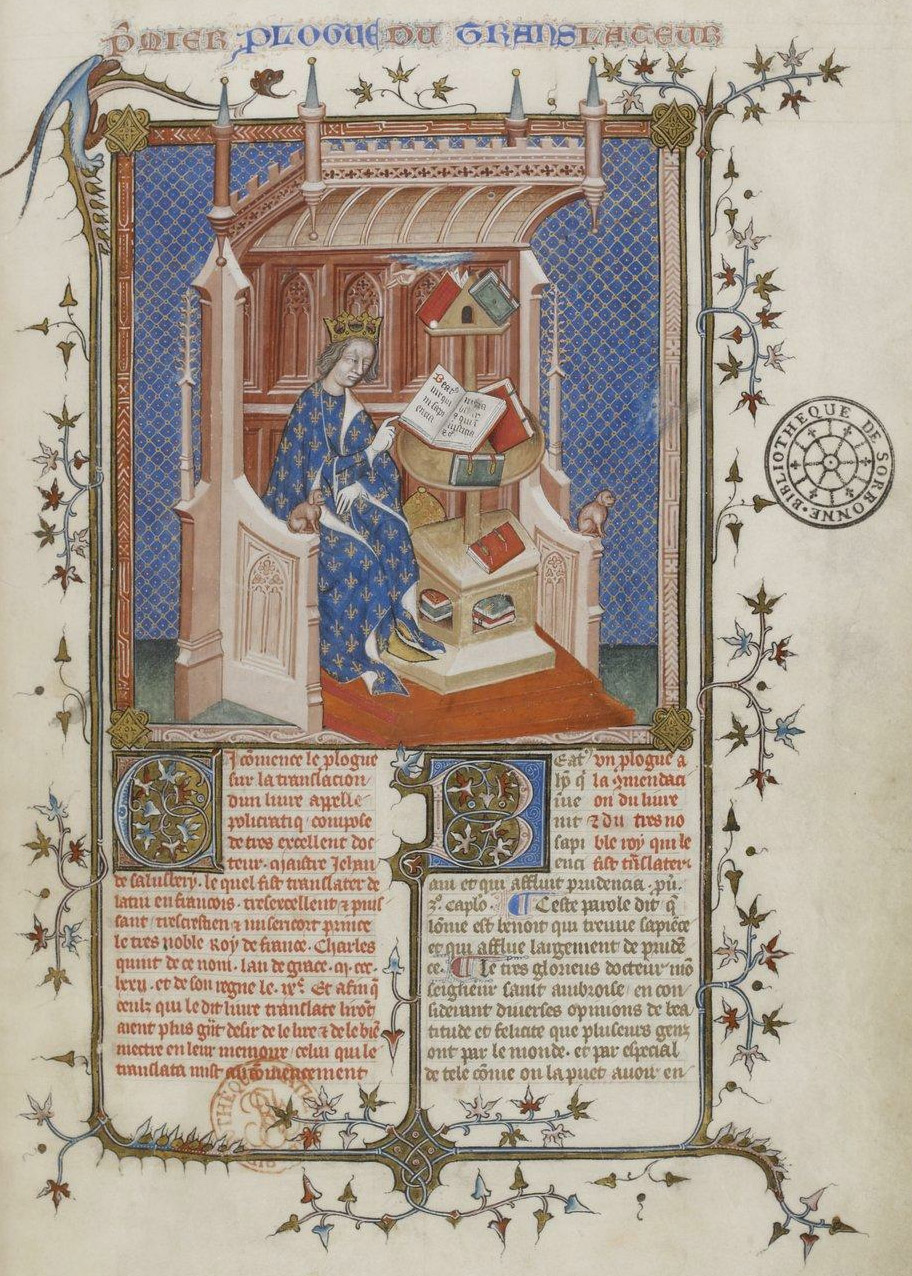 PMIER PLOGUE DU TRANSLATEUR
Beat9
ille qui
in sapi
encia
BIBLIOTHEQUE DE SORBONNE
Ci comence le plogue
sur la translacion
dun livre appelle
policratiq compose
de tres excellent doc
teur. maistre Jehan
de salusbery. le quel fist translater de
latin en francois. tresexcellent & puis
sant trescrestien & misericort prince
le tres noble Roy de france. Charles
quint de ce nom. lan de grace. m. ccc.
lxxij. et de son regne le. ixe. Et afin q
ceulz qui le dit livre translate liront
aient plus gnt desir de le lire & de le bie
mectre en leur memoire celui qui le
translata mist au comencement
un plogue a
la omendaci
on du livre
& du tres no
ble roy qui le
fist tnslater.
Beat9
ho q
inve
nit
sapi
enci
am et qui affluit prudencia. pu.
3o. caplo. Ceste parole dit q
lome est benoit qui treuve sapiece
et qui afflue largement de prude
ce. Le tres glorieus docteur mo
seigneur saint ambroise en con
siderant diverses opinions de bea
titude et felicite que pluseurs genz
ont par le monde. et par especial
de tele come on la puet avoir en